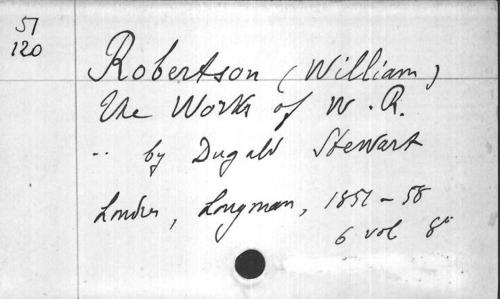 51
120
Robertson (William)
The Works of W. R.
.. by Dugald Stewart
Londres, Longman, 1851-58
6 vol 8°